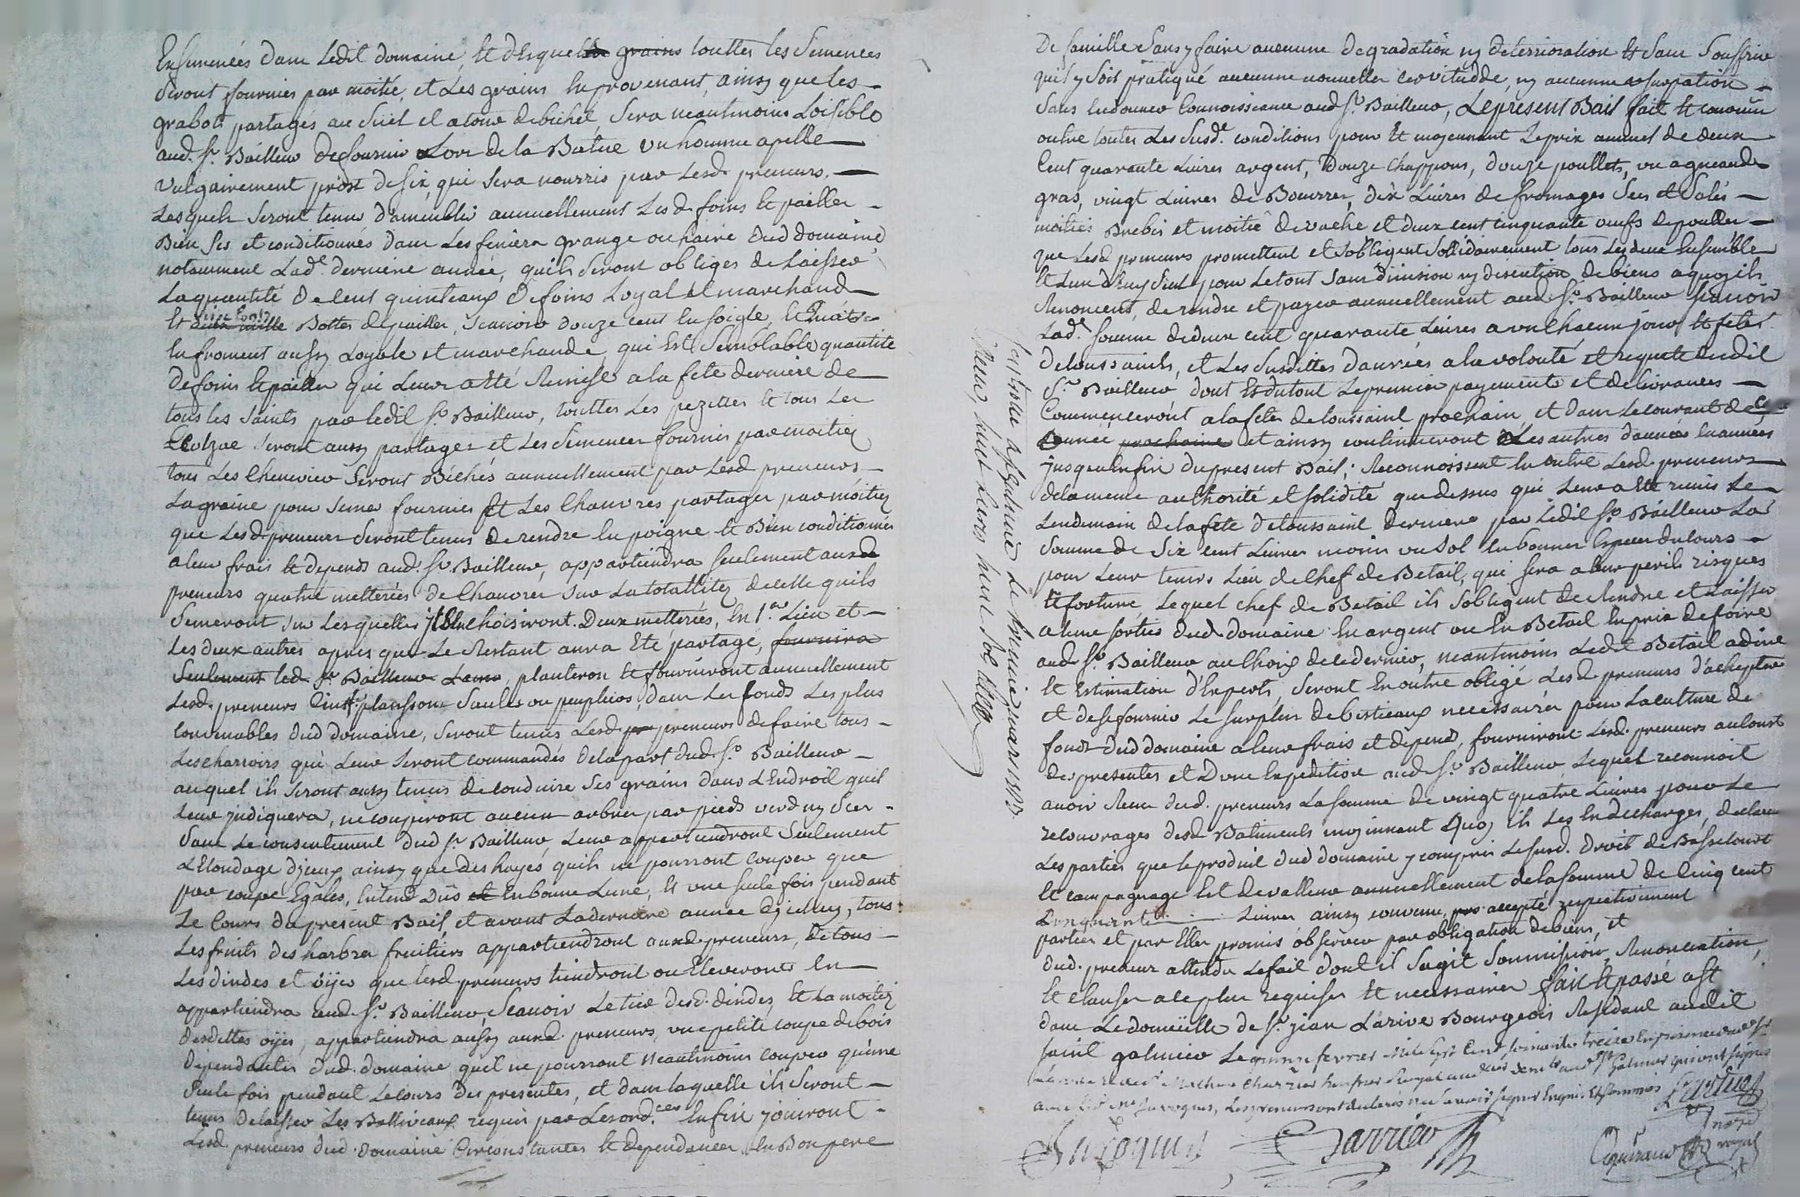 Ensemencés dans ledit domaine, et desquels grains touttes les Semences
Seront fournies par moitié, et Les grains En provenant, ainsy que les
grabots partagés au Suel et a tour de bichet, Sera neantmoins Loisible
aud. Sr. Bailleur de fournir Lors de la Batue un homme apellé
Vulgairement prost de six qui Sera nourris par Lesd. preneurs,
Lesquels Seront tenus d'ameublir annuellement Lesd. foins et pailles
Bien Secs et conditionnés dans Les feniers grange ou haire dud domaine
notamment Lade. derniere année, quils Seront obligés de Laisser
La quantité de cent quinteaux de foins Loyal et marchand
Et deux mille Bottes de pailles, Scavoir douze cent En Soigle, et huit
En froment aussy Loyale et marchande, qui Est Semblable quantité
de foins et pailles qui Leur a été Remise a la fete derniere de
tous les Saints par ledit Sr. Bailleur, touttes Les pezettes et tous Les
Colzac Seront aussy partagés et Les Semences fournies par moitiés
tous Les Cheneviers Seront Bêchés annuellement par Lesd. preneurs
La graine pour Semer fournies Et Les Chanvres partagés par moitiés
que Lesd. preneurs Seront tenus de rendre En poigne et Bien conditionnés
a leur frais et depends aud. Sr. Bailleur, appartiendra Seulement auxd
preneurs quatre metterées de Chanvres Sur La totallité de celle quils
Semeront Sur Lesquelles ils En choisiront Deux metterées, En 1er. Lieu et
Les deux autres apres que Le Restant aura Eté partagé, fournira
Seulement led. Sr. Bailleur Leurs, planteront et fourniront annuellement
Lesd. preneurs plansons Saules ou peupliers, dans Les fonds Les plus
convenables dud domaine, Seront tenus Lesd. preneurs de faire tous
Les charrois qui Leur Seront commandés de la part dud. Sr. Bailleur
auquel ils Seront aussy tenus de conduire Ses grains dans L'Endroit quil
Leur jndiquera, ne couperont aucun arbres par pieds verd ny Sec
Sans Le consentement dud Sr. Bailleur, Leur appartiendront Seulement
L'Elondage djceux ainsy que des hayes quils ne pourront couper que
par coupe Egales, En tems Dus et En bonne Lune, Et une Seule fois pendant
Le Cours du present Bail, et avant La derniere année djcelluy, tous
Les fruits des harbres fruitiers appartiendront auxd preneurs, Et tous
Les dindes et oÿes que Lesd preneurs tiendront ou Eleveronts En
appartiendra aud Sr. Bailleur Scavoir Le tier desd. dindes, Et La moitié
desdittes oÿes, appartiendra aussy auxd. preneurs, une petite coupe de bois
dépendantes dud. domaine quel ne pourront neantmoins couper qu'une
Seule fois pendant Le cours des presentes, et dans laquelle ils Seront
tenus de laisser Les Balliveaux requis par Les ordces. Enfin jouiront
Lesd. preneurs dud. domaine Circonstances et dependances En Bon pere
De famille Sans y faire aucunne degradation ny deterrioration Et Sans Souffrir
quil y Soit pratiqué aucunne nouvelles Servitudde, ny aucunne usurpation
Sans En donner Connoissance aud Sr. Bailleur, Le present Bail fait Et convenu
outre toutes Les Susd. conditions pour Et moyennant Le prix annuel de deux
Cent quarante Livres argent, Douze Chappons, douze poullets, un agneaud
gras, vingt Livres de Beurres, dix Livres de fromages Sec et Salés
moitiés Brebis et moitié de vache et deux cent cinquante oeufs de poulles
que Lesd preneurs promettent et S'obligent Sollidairement tous Les deux Ensemble
Et L'un d'Eux Seul pour Le tout Sans division ny discution de biens a quoy ils
Renoncent, de rendre et payer annuellement aud Sr. Bailleur Scavoir
Lade. Somme de deux cent quarante Livres a un chacun jour Et fetes
de toussaints, et Les Susdittes danrées a la volonté et requete dudit
Sr. Bailleur dont Et du tout Le premier payements et delivrances
Commenceronts a la fetes de toussaint prochain et dans Le courant de Ce
L'année prochaine et ainsy continueront Les autres d'années En années
jusqu'a la fin du present Bail, Reconnoissent En outre Lesd. preneurs
de la meme authorité et Solidité que dessus qui Leur a Eté remis Le
Lendemain de la fete de toussaint derniere par Ledit Sr. Bailleur La
Somme de Six Cent Livres moins un Sol En bonnes Especes du Cours
pour Leur tenir Lieu de Chef de Betail, qui Sera a leur perils risques
Et fortune Lequel Chef de Betail ils S'obligent de Rendre et Laisser
a leur Sorties dud. domaine En argent ou En Betail En prix de foire
aud. Sr. Bailleur au Choix de ce dernier, neantmoins Ledit Betail a dire
Et Estimation d'Experts, Seront En outre obligé Lesd. preneurs d'achepter
et de Se fournir Le Surplus de bestieaux necessaires pour La culture des
fonds dud domaine a leur frais et depend, fourniront Lesd. preneurs au Cours
des presentes et D'une Expedition aud Sr. Bailleur Lequel reconnoit
avoir Receu dud. preneurs La Somme de vingt quatre Livres pour Le
recouvrages desd. Batiments moyennant Quoy il Les En decharges, declarent
Les parties que Le produit dud domaine y compris Le Susd. Droit de Basse Court
Et Campagnage Est de valleur annuellement de la Somme de Cinq cent
Cinquante Livres ainsy convenu, accepté respectivement
parties et par Elles promis observer par obligation de biens, et
dud. preneur attendu Le fait dont il S'agit Soummission, Renonciation,
Et Clauses a ce plus requises Et necessaires fait Et passé aSt
dans Le domicille de Sr. jean Larive Bourgeois Residant audit
Saint galmier Le quinze fevrier Mil Sept Cent Soixante treize En presence de Sr.
Controllé a St galmier Le premier mars 1773
Reçu huit Livres neuf Sol